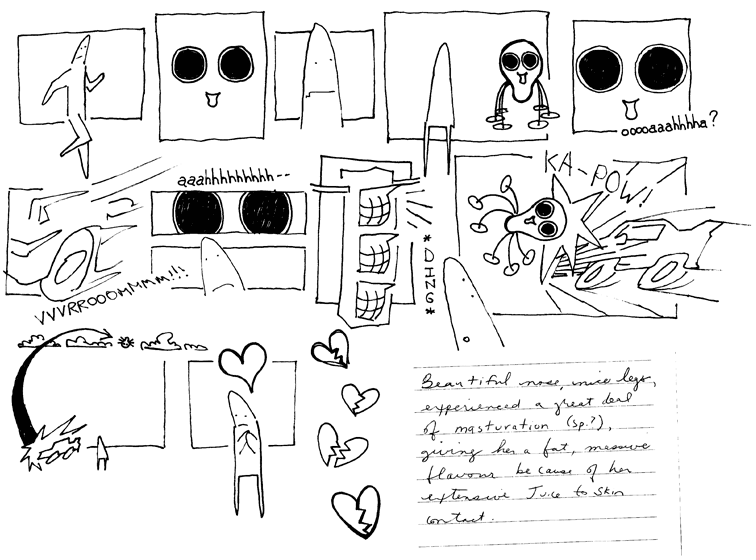 oooaaahhhha?
aaahhhhhhhhh--
KA-POW!
VVVRROOOMMMM!!!
*DING*
Beautiful nose, nice legs,
experienced a great deal
of masturation (sp.?),
giving her a fat, massive
flavour because of her
extensive Juice to Skin
contact.